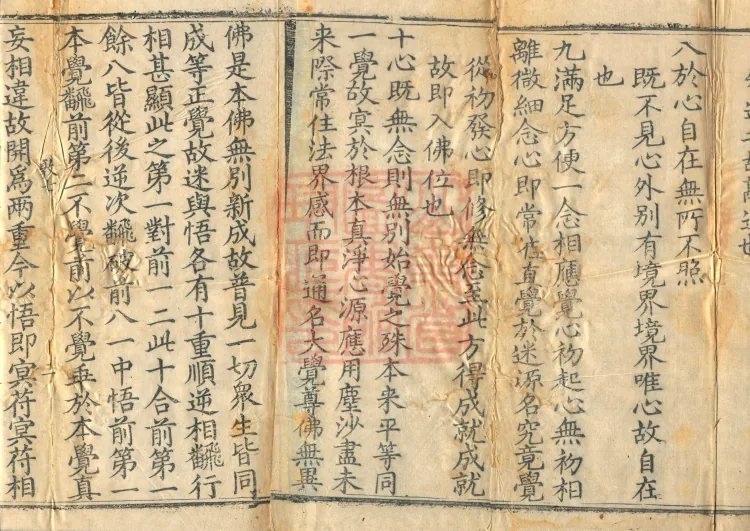 八於心自在無所不照
既不見心外別有境界境界唯心故自在
也
九滿足方便一念相應覺心初起心無初相
離微細念心即常住直覺於迷源名究竟覺
從初發心即修無念至此方得成就成就
故即入佛位也
十心既無念則無別始覺之殊本來平等同
一覺故冥於根本真淨心源應用塵沙盡未
来際常住法界感而即通名大覺尊佛無異
佛是本佛無別新成故普見一切衆生皆同
成等正覺故迷與悟各有十重順逆相飜行
相甚顯此之第一對前一二此十合前第一
餘八皆從後逆次飜破前八一中悟前第一
本覺飜前第二不覺前以不覺乖於本覺真
妄相違故開為兩重今以悟即冥符冥符相